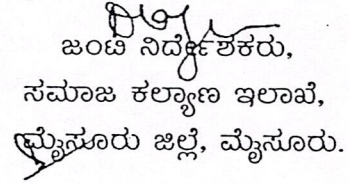 ಜಂಟಿ ನಿರ್ದೇಶಕರು,
ಸಮಾಜ ಕಲ್ಯಾಣ ಇಲಾಖೆ,
ಮೈಸೂರು ಜಿಲ್ಲೆ, ಮೈಸೂರು.